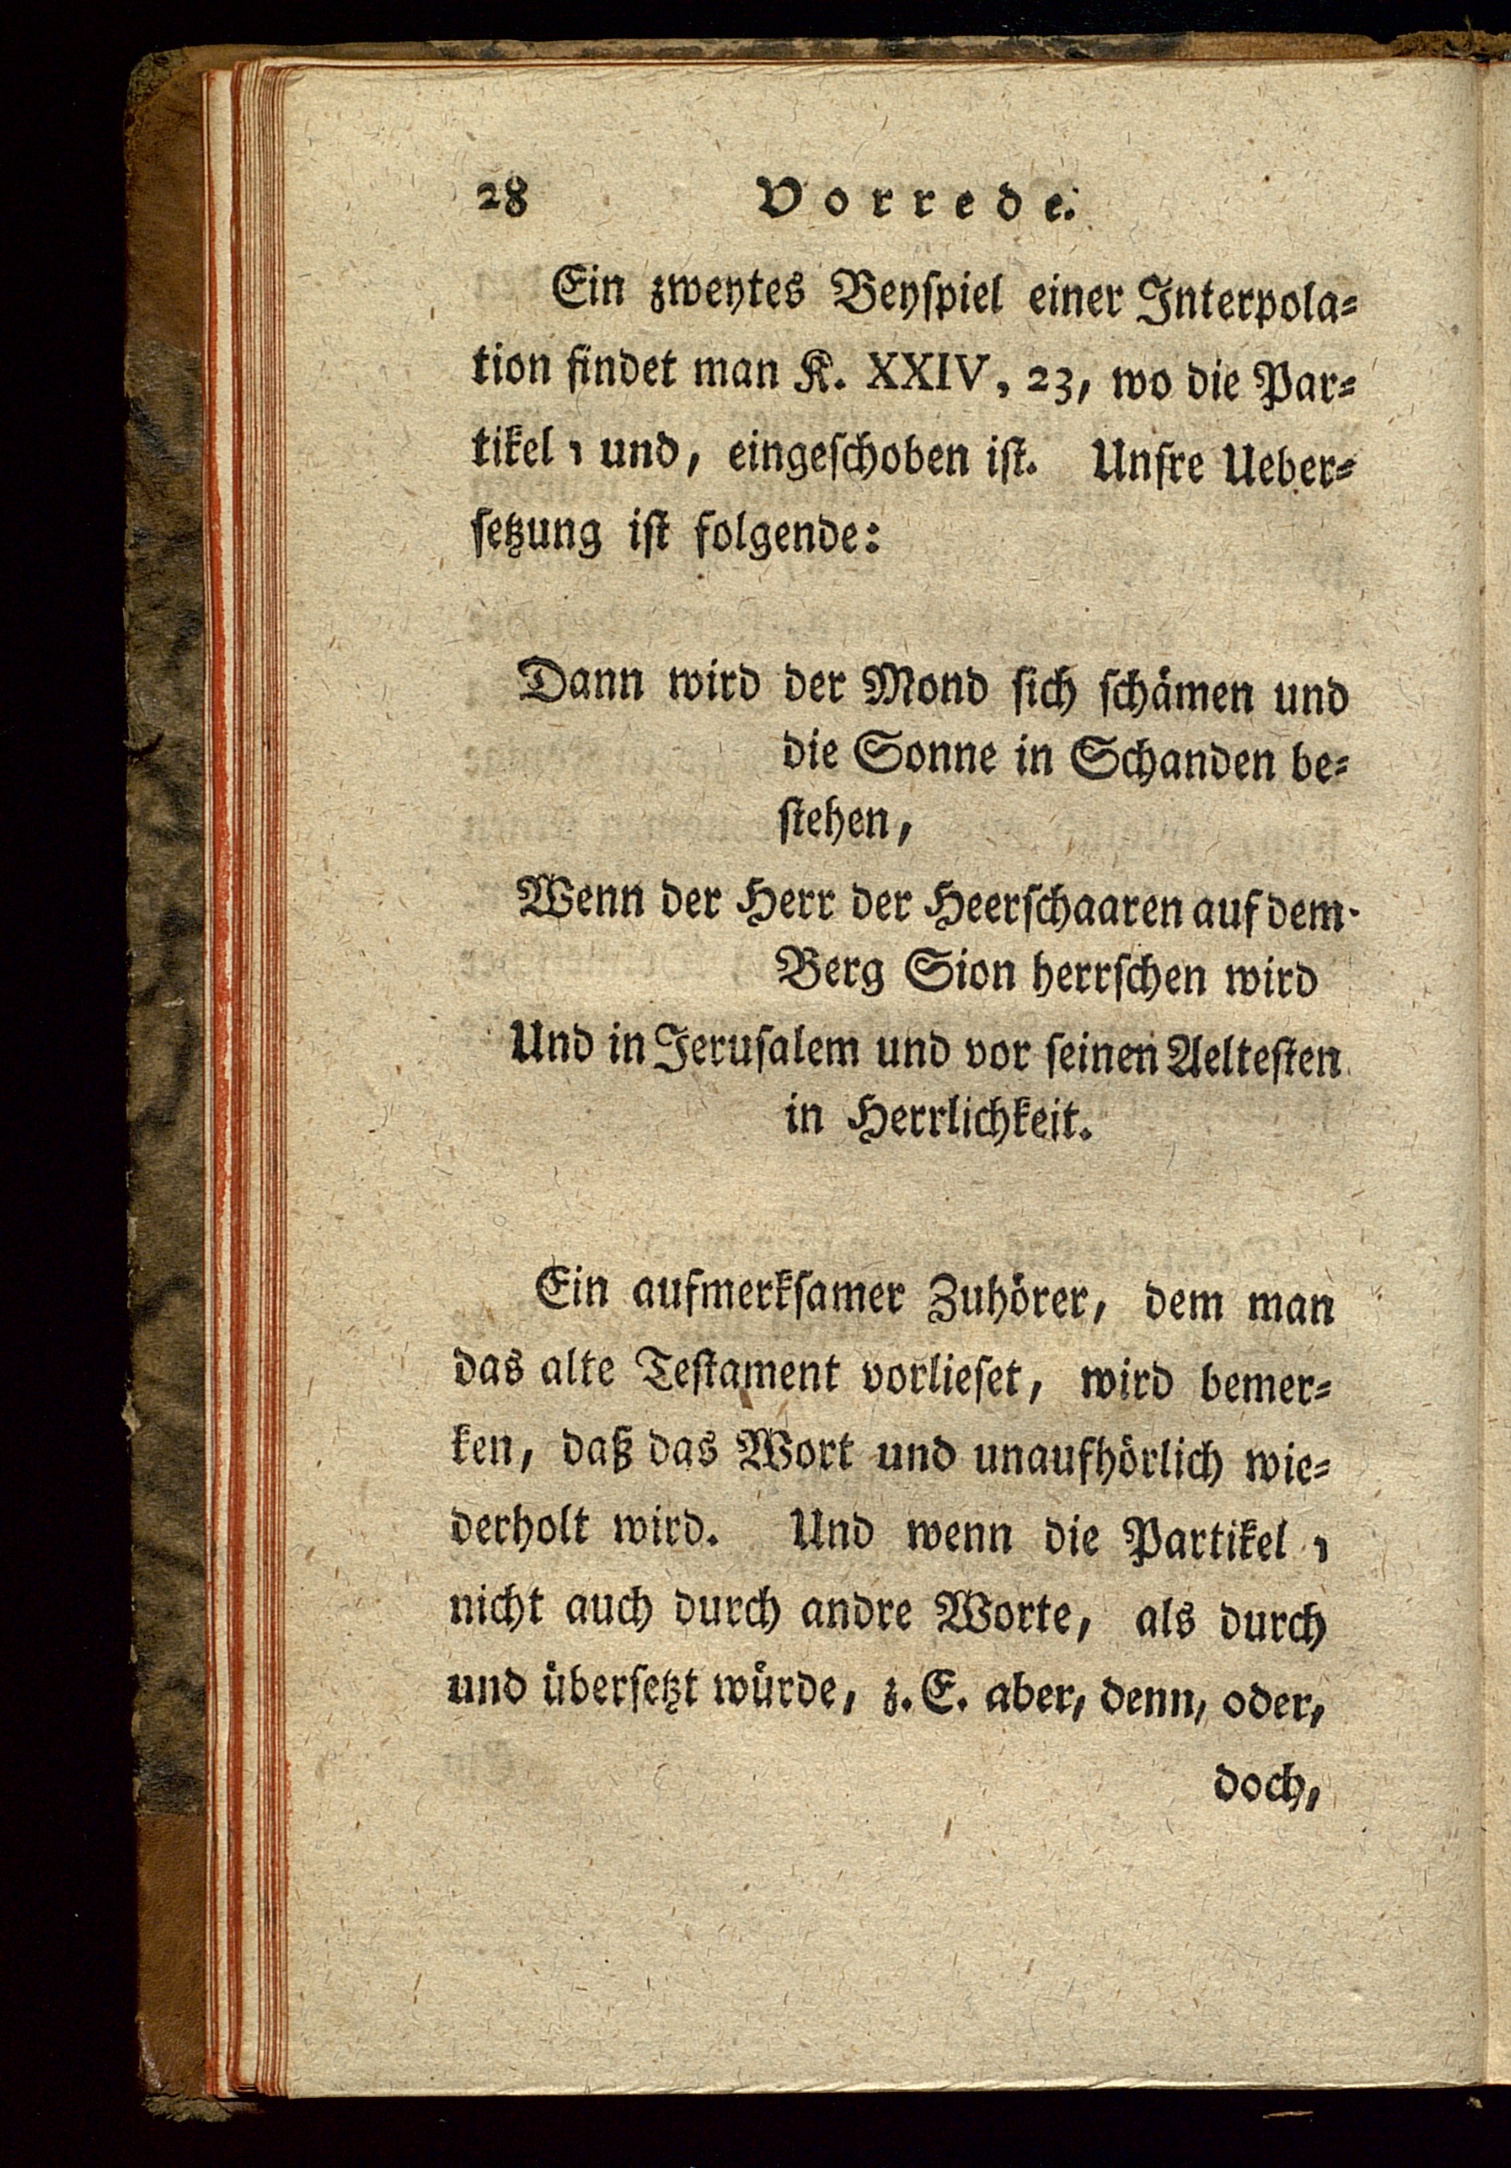 28 Vorrede.
Ein zweytes Beyſpiel einer Interpola⸗
tion findet man K. XXIV, 23, wo die Par⸗
tikel ו und, eingeſchoben iſt. Unſre Ueber⸗
ſetzung iſt folgende:
Dann wird der Mond ſich ſchämen und
die Sonne in Schanden be⸗
ſtehen,
Wenn der Herr der Heerſchaaren auf dem
Berg Sion herrſchen wird
Und in Jeruſalem und vor ſeinen Aelteſten
in Herrlichkeit.
Ein aufmerkſamer Zuhörer, dem man
das alte Teſtament vorlieſet, wird bemer⸗
ken, daß das Wort und unaufhörlich wie⸗
derholt wird. Und wenn die Partikel ו
nicht auch durch andre Worte, als durch
und überſetzt würde, z. E. aber, denn, oder,
doch,